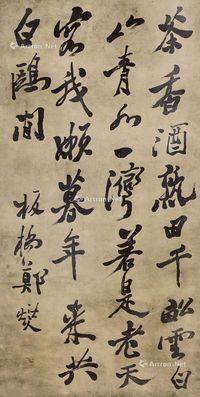 茶香酒熟田千畝雲白
山青水一灣若是老天
容我懶暮年來共
白鷗閒 板橋鄭燮